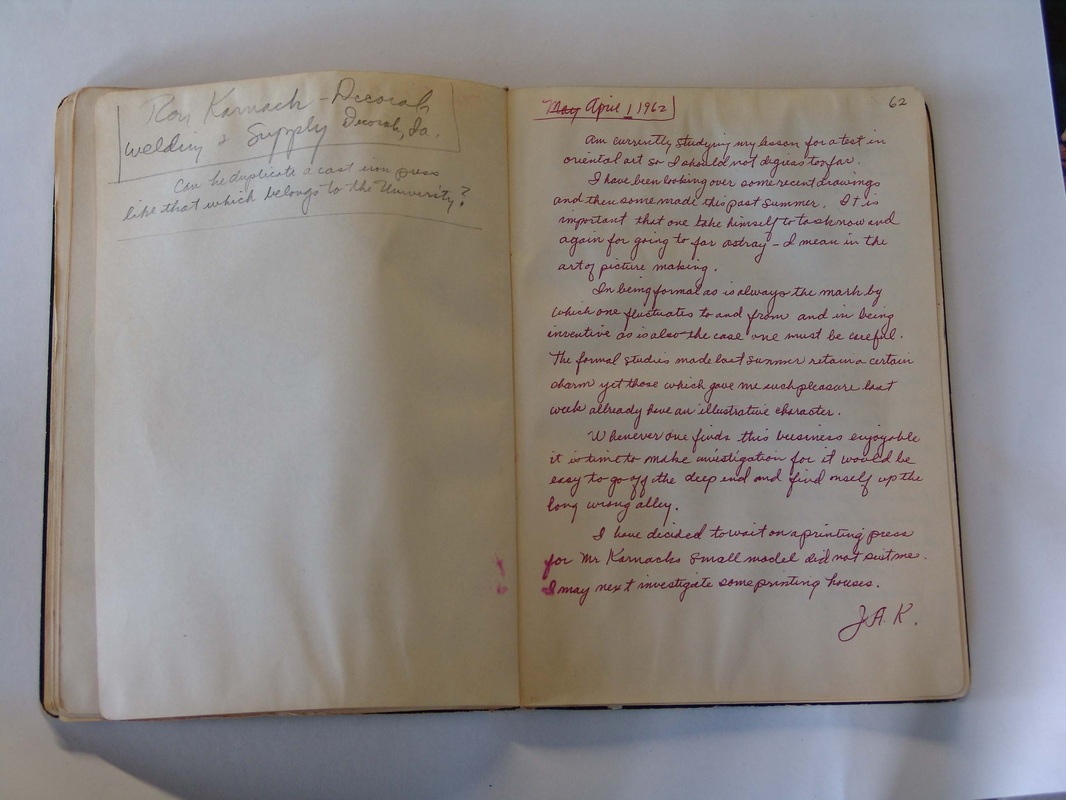 Roy Karnach - Decorah
Welding & Supply Decorah, Ia.
Can he duplicate a cast iron press
like that which belongs to the University?
62
May April 1 1962
Am currently studying my lesson for a test in
oriental art so I should not digress too far.
I have been looking over some recent drawings
and then some made this past summer. It is
important that one take himself to task now and
again for going to far astray - I mean in the
art of picture making.
In being formal as is always the mark by
which one fluctuates to and from and in being
inventive as is also the case one must be careful.
The formal studies made last summer retain a certain
charm yet those which gave me such pleasure last
week allready have an illustrative character.
Whenever one finds this business enjoyable
it is time to make investigation for it would be
easy to go off the deep end and find onself up the
long wrong alley.
I have decided to wait on a printing press
for Mr Karnachs small model did not suit me.
I may next investigate some printing houses.
J.A.K.